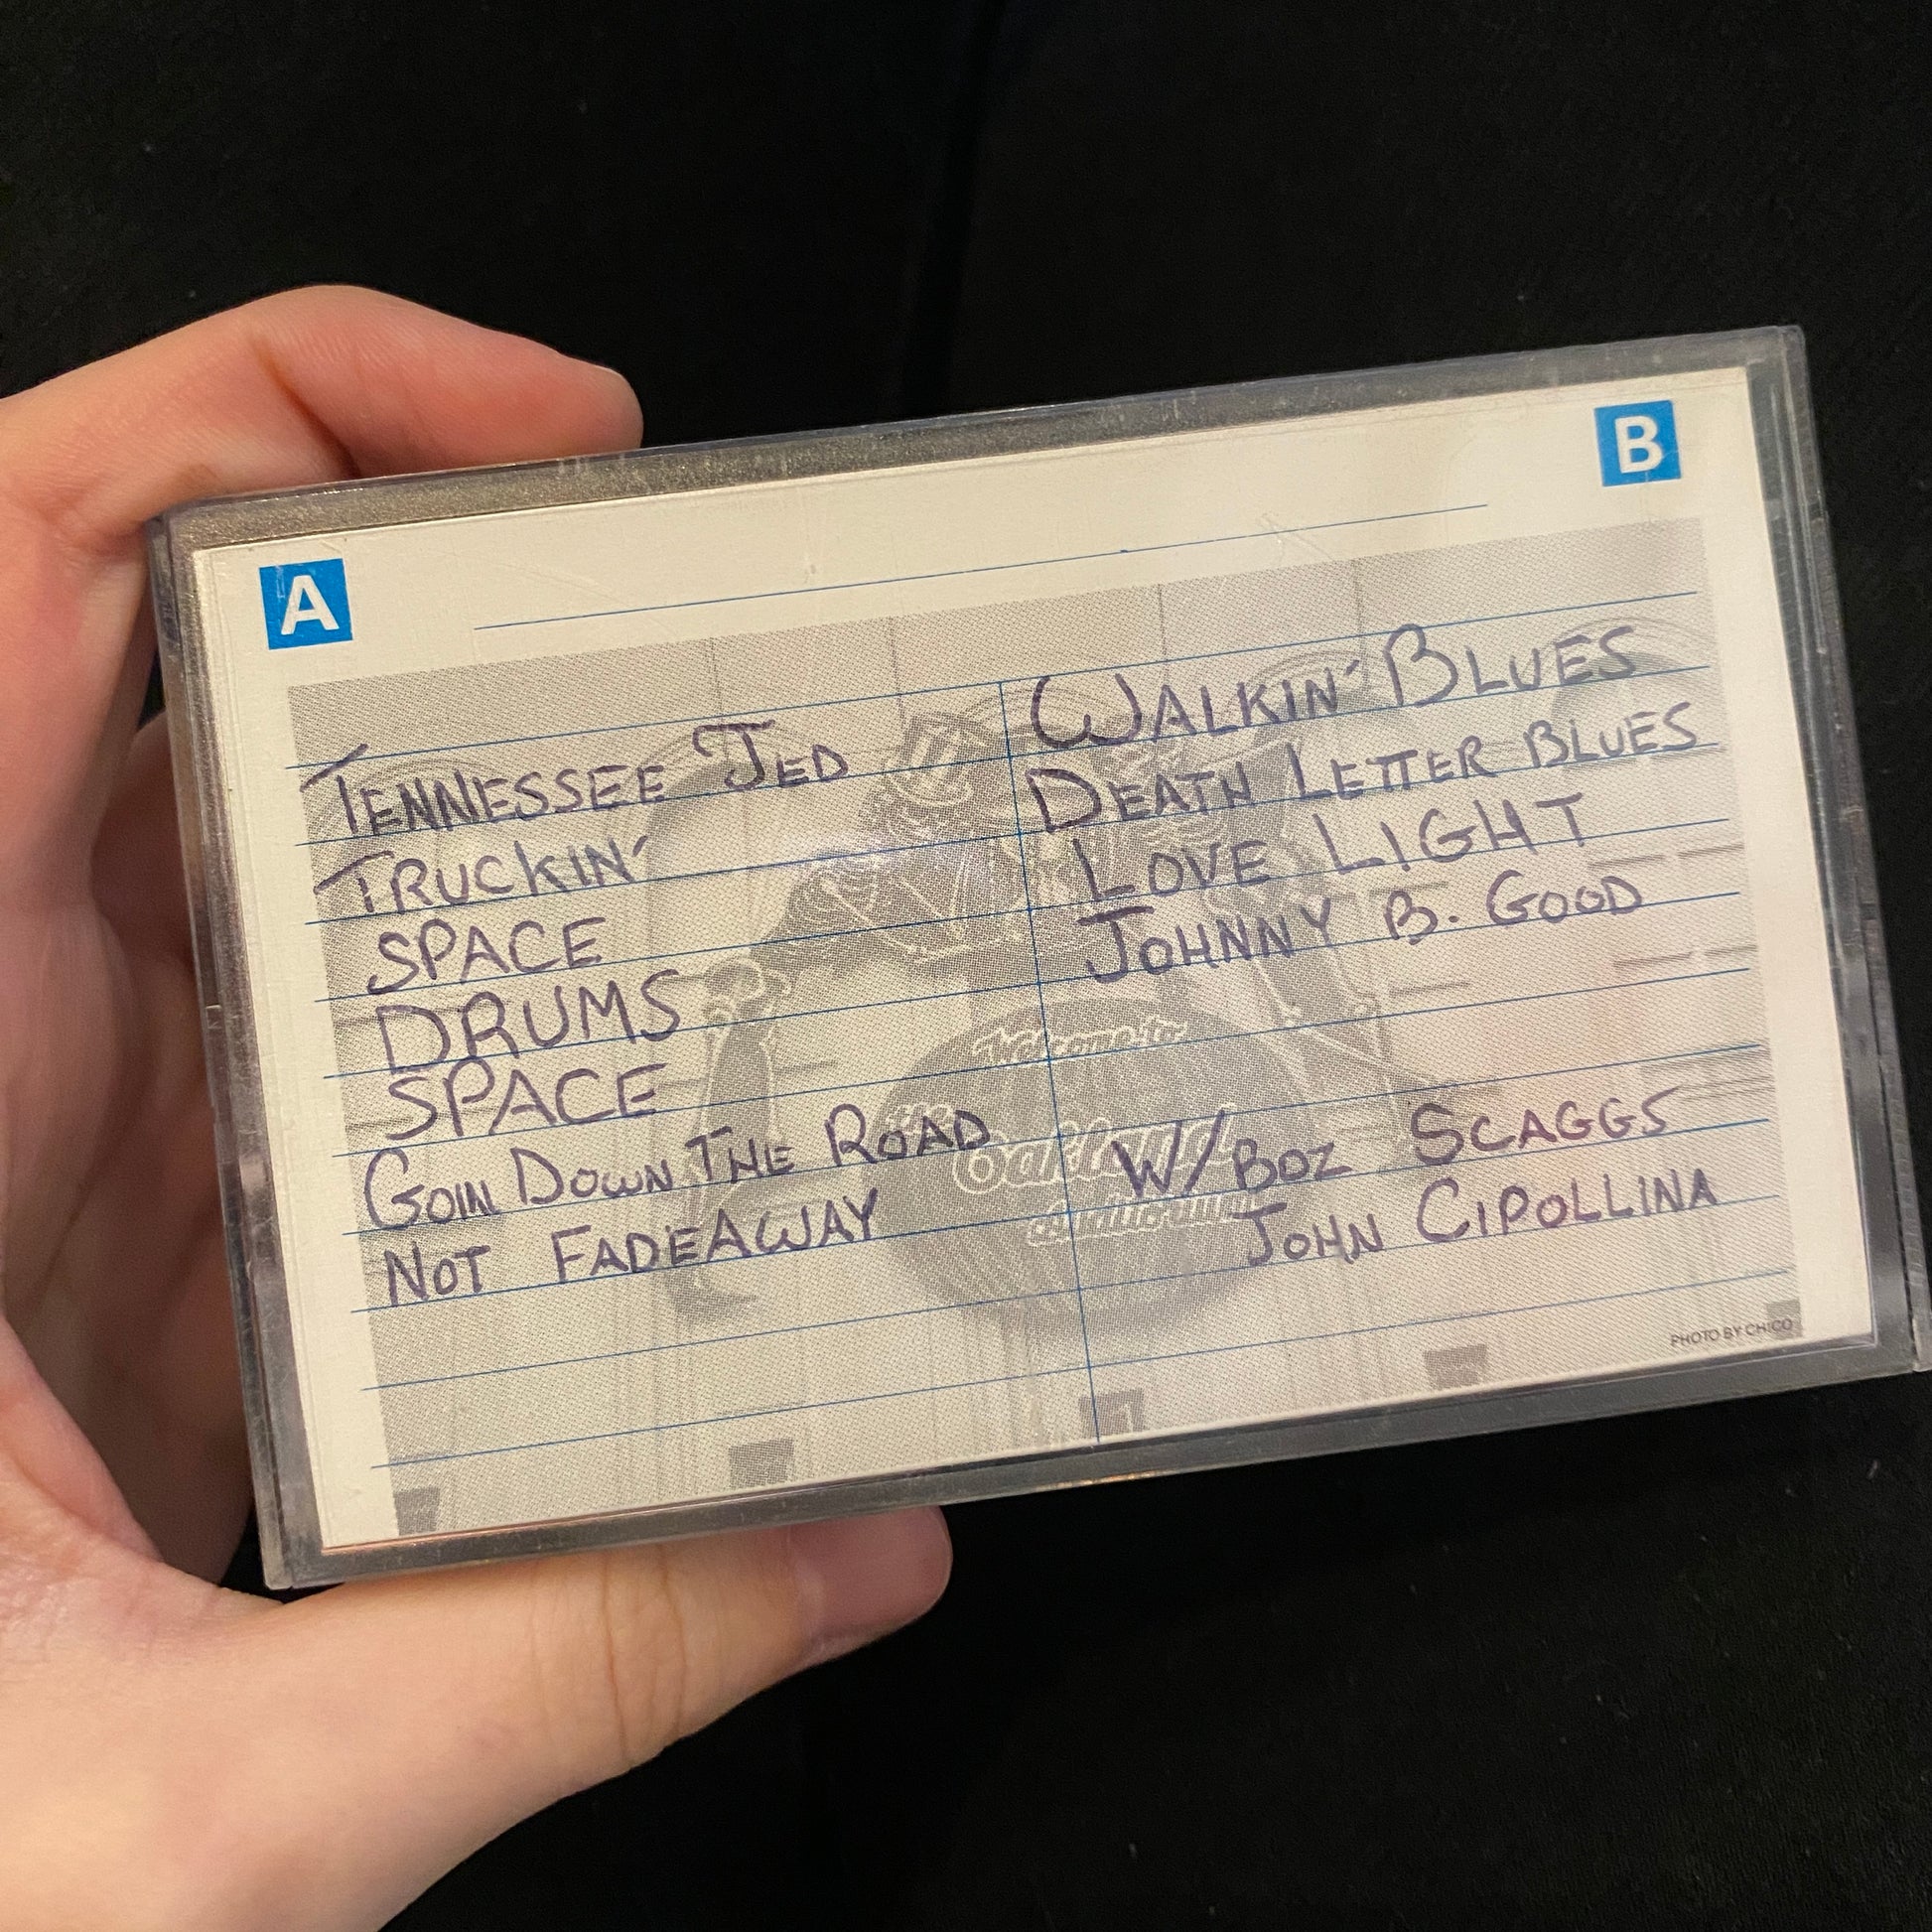 A
B
TENNESSEE JED
TRUCKIN'
SPACE
DRUMS
SPACE
GOIN DOWN THE ROAD
NOT FADEAWAY
WALKIN' BLUES
DEATH LETTER BLUES
LOVE LIGHT
JOHNNY B. GOOD
W/BOZ SCAGGS
JOHN CIPOLLINA
Oakland
PHOTO BY CHICO